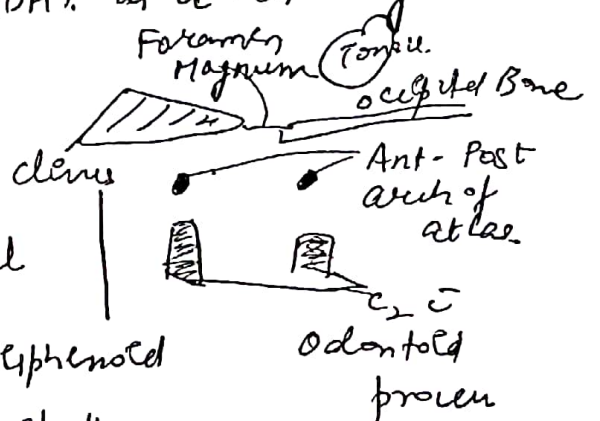 Foramen
Magnum
Tonsil.
occipital Bone
clivus
Ant - Post
arch of
atlas
C₂ c̄
Odontoid
process
sphenoid